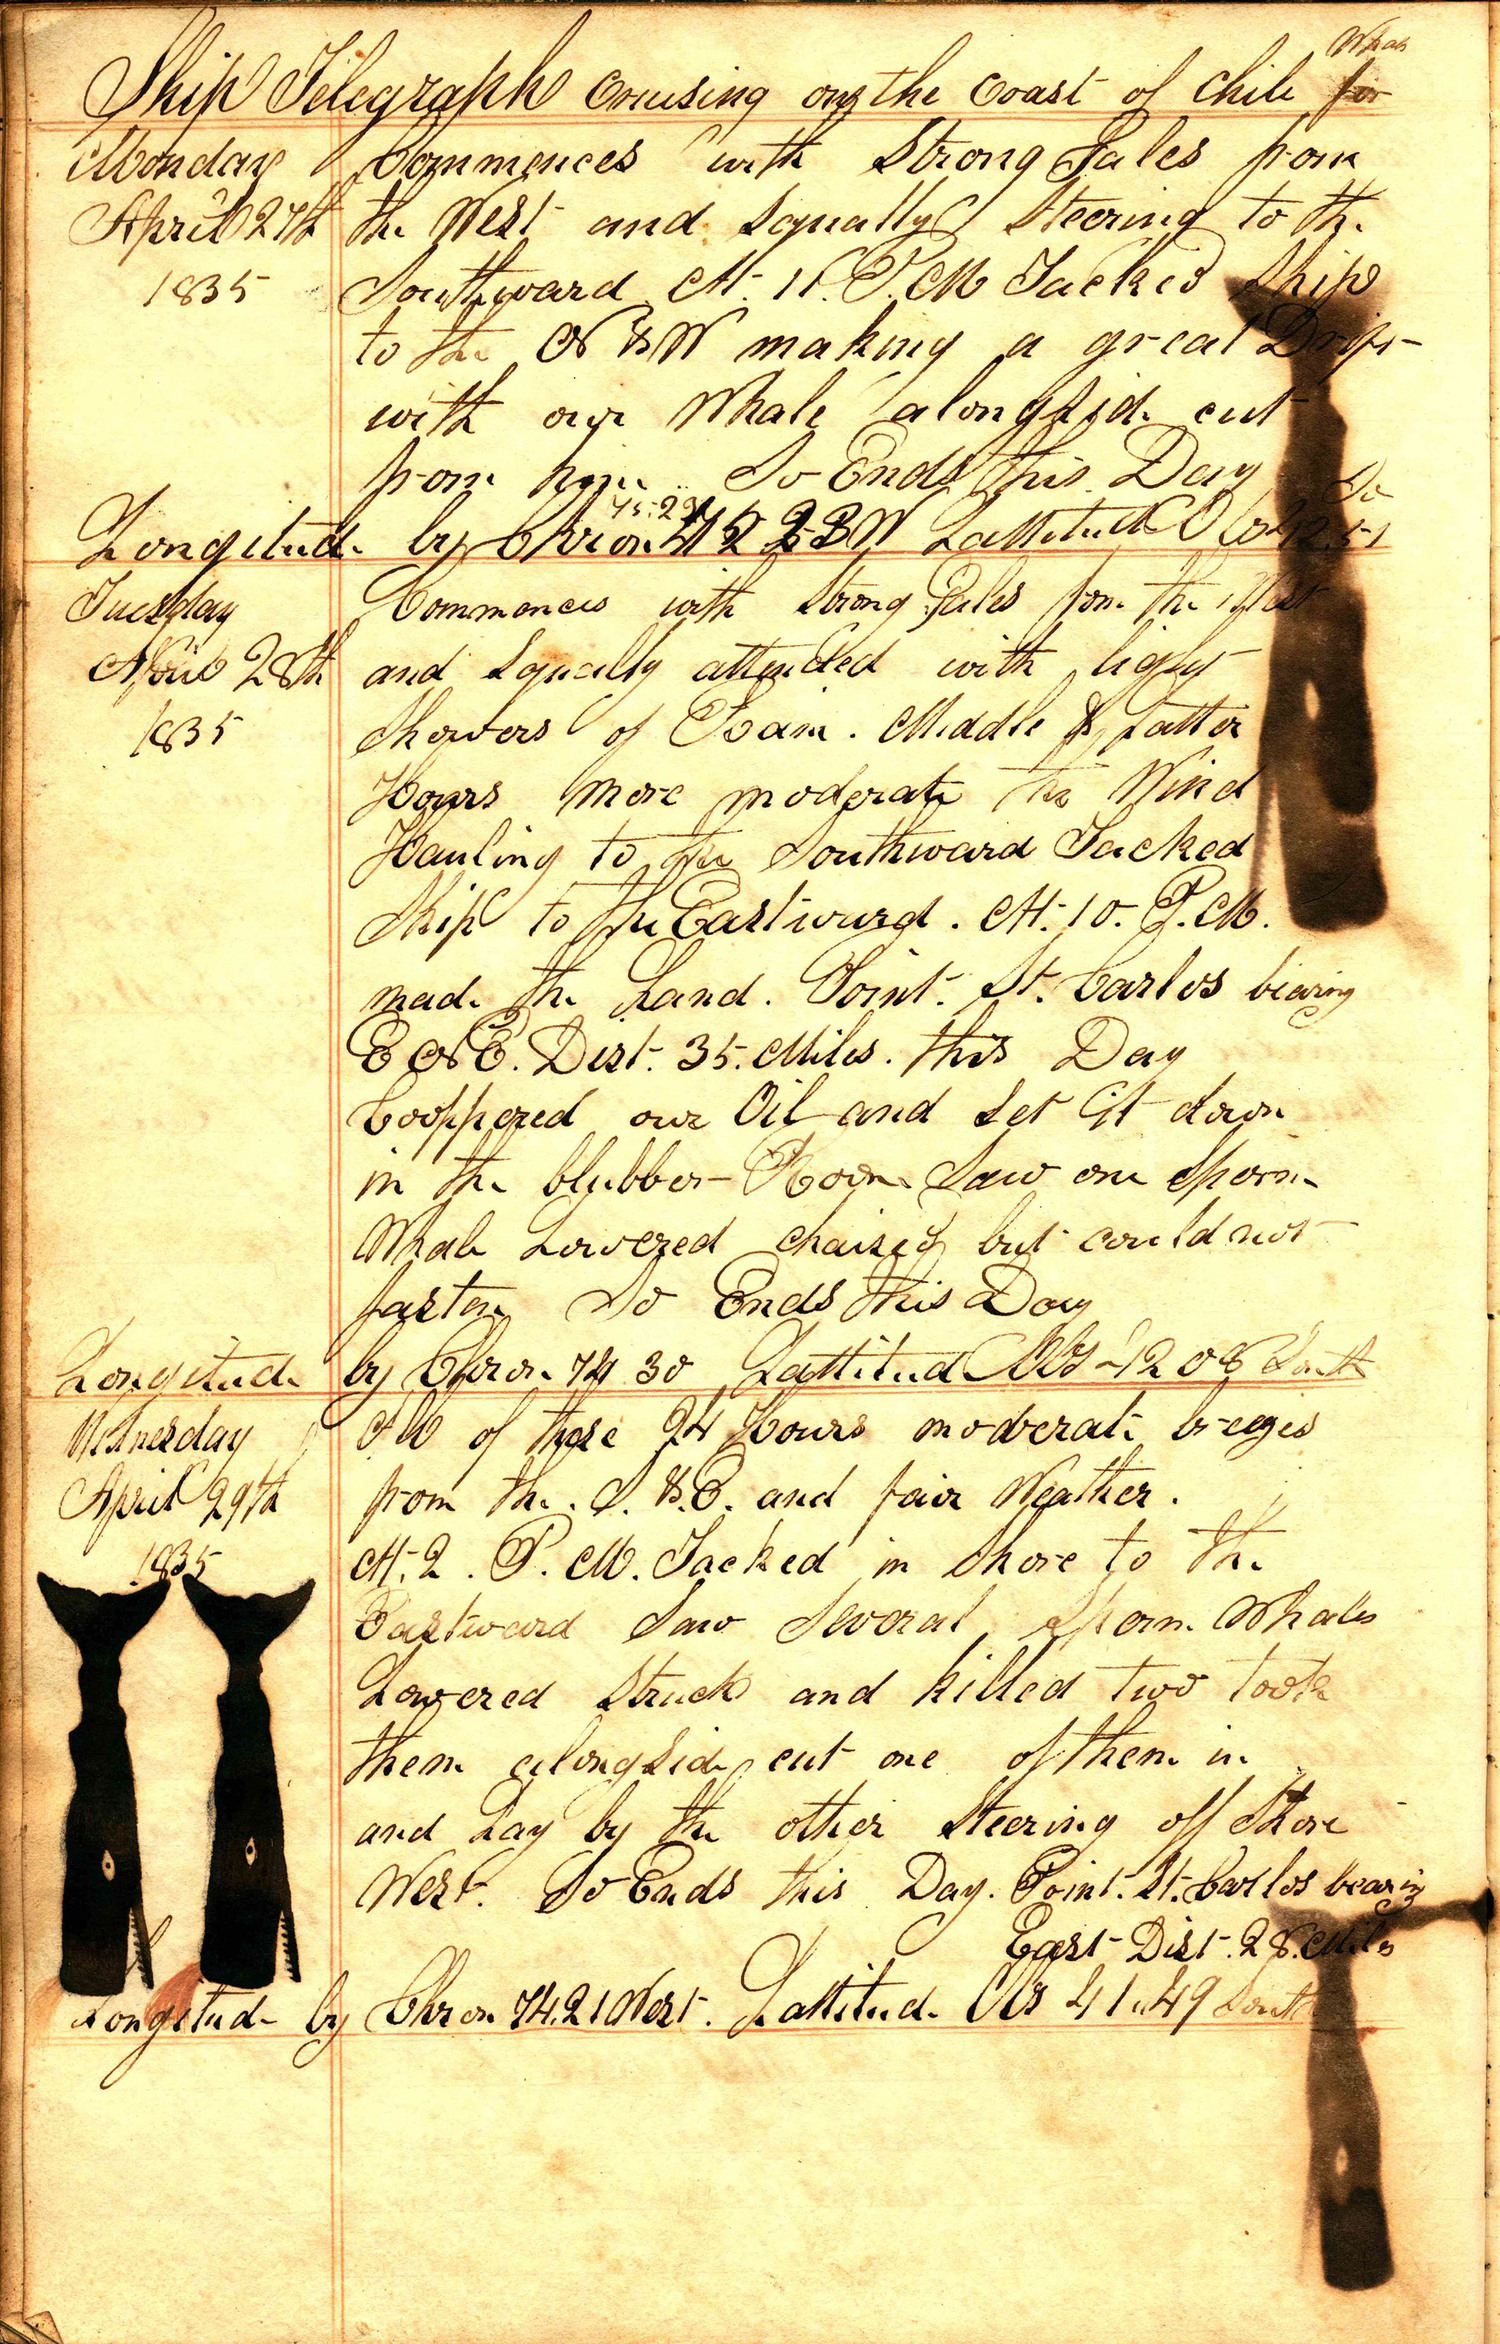 Whale
Ship Telegraph Cruising on the Coast of Chile for
Monday Commences with Strong Gales from
April 27th the West and Squally Steering to the
1835 Southward At 11. P.M Tacked Ship
to the N & W making a great Drift
with our Whale alongside cut
from him. So Ends this Day
75.29 So
Longitude by Chron W Lattitude
Tuesday Commences with Strong Gales from the West
April 28th and Squally attended with light
1835 Showers of Rain. Middle & Latter
Hours more moderate the Wind
Hauling to the Southward Tacked
Ship to the Eastward. At. 10. P.M.
made the Land. Point. St. Carlos bearing
E N E. Dist. 35. Miles. this Day
Cooppered our Oil and Set it down
in the blubber Room Saw one Sperm
Whale Lowered chaised but could not
fasten So Ends this Day
Longitude by Chron 74 30 Lattitude Obs 42 08 South
Wednesday All of these 24 Hours moderate breezes
April 29th from the. S. & E. and fair Weather.
1835 At. 2. P. M. Tacked in Shore to the
Eastward Saw Several Sperm Whales
Lowered Struck and killed two took
them alongside cut one of them in
and Lay by the other Steering off Shore
West. So Ends this Day. Point. St. Carlos bearing
East Dist. 28. Miles
Longitude by Chron 74.21 West. Lattitude Obs 41.49 South